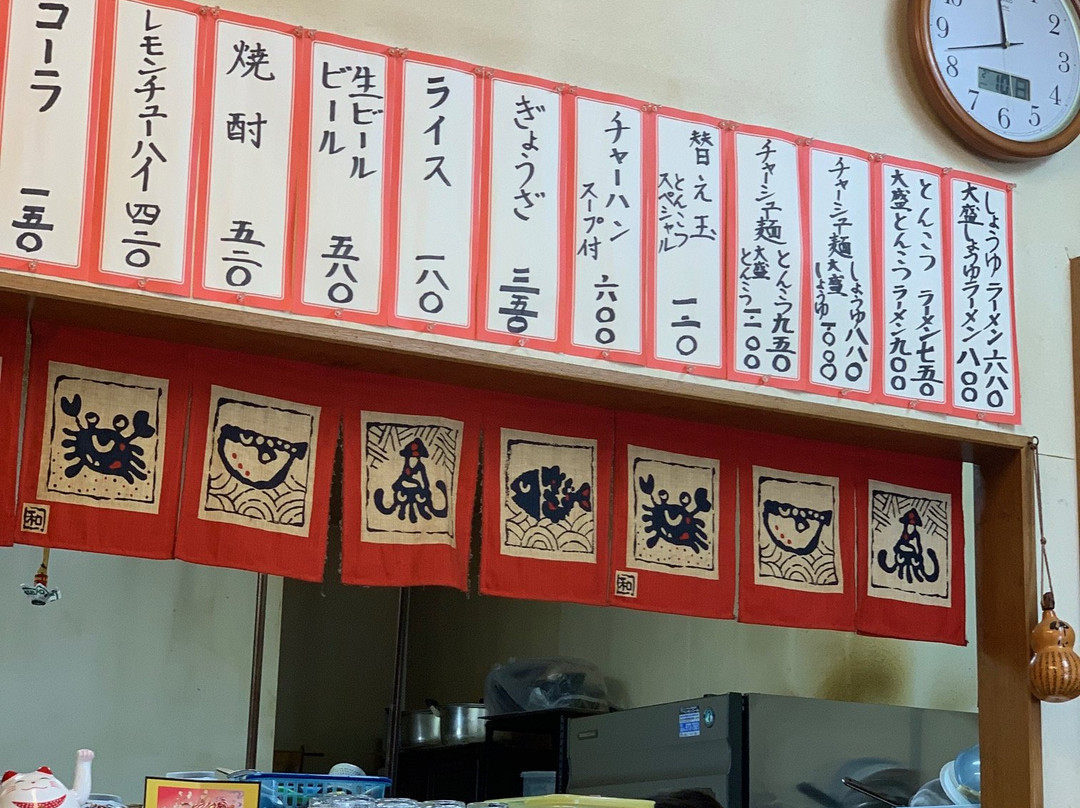 しょうゆ ラーメン 六八〇
大盛しょうゆラーメン 八〇〇
とんこつ ラーメン七五〇
大盛とんこつラーメン九〇〇
チャーシュー麺 しょうゆ 八八〇
大盛しょうゆ 一〇〇〇
チャーシュー麺 とんこつ九五〇
大盛とんこつ 一一〇〇
替え玉 一二〇
とんこつ
スペシャル
チャーハン 六〇〇
スープ付
ぎょうざ 三五〇
ライス 一八〇
生ビール
ビール 五八〇
焼酎 五二〇
レモンチューハイ 四二〇
コーラ 一五〇
10日
2
3
4
5
6
7
8
9
10
和
和